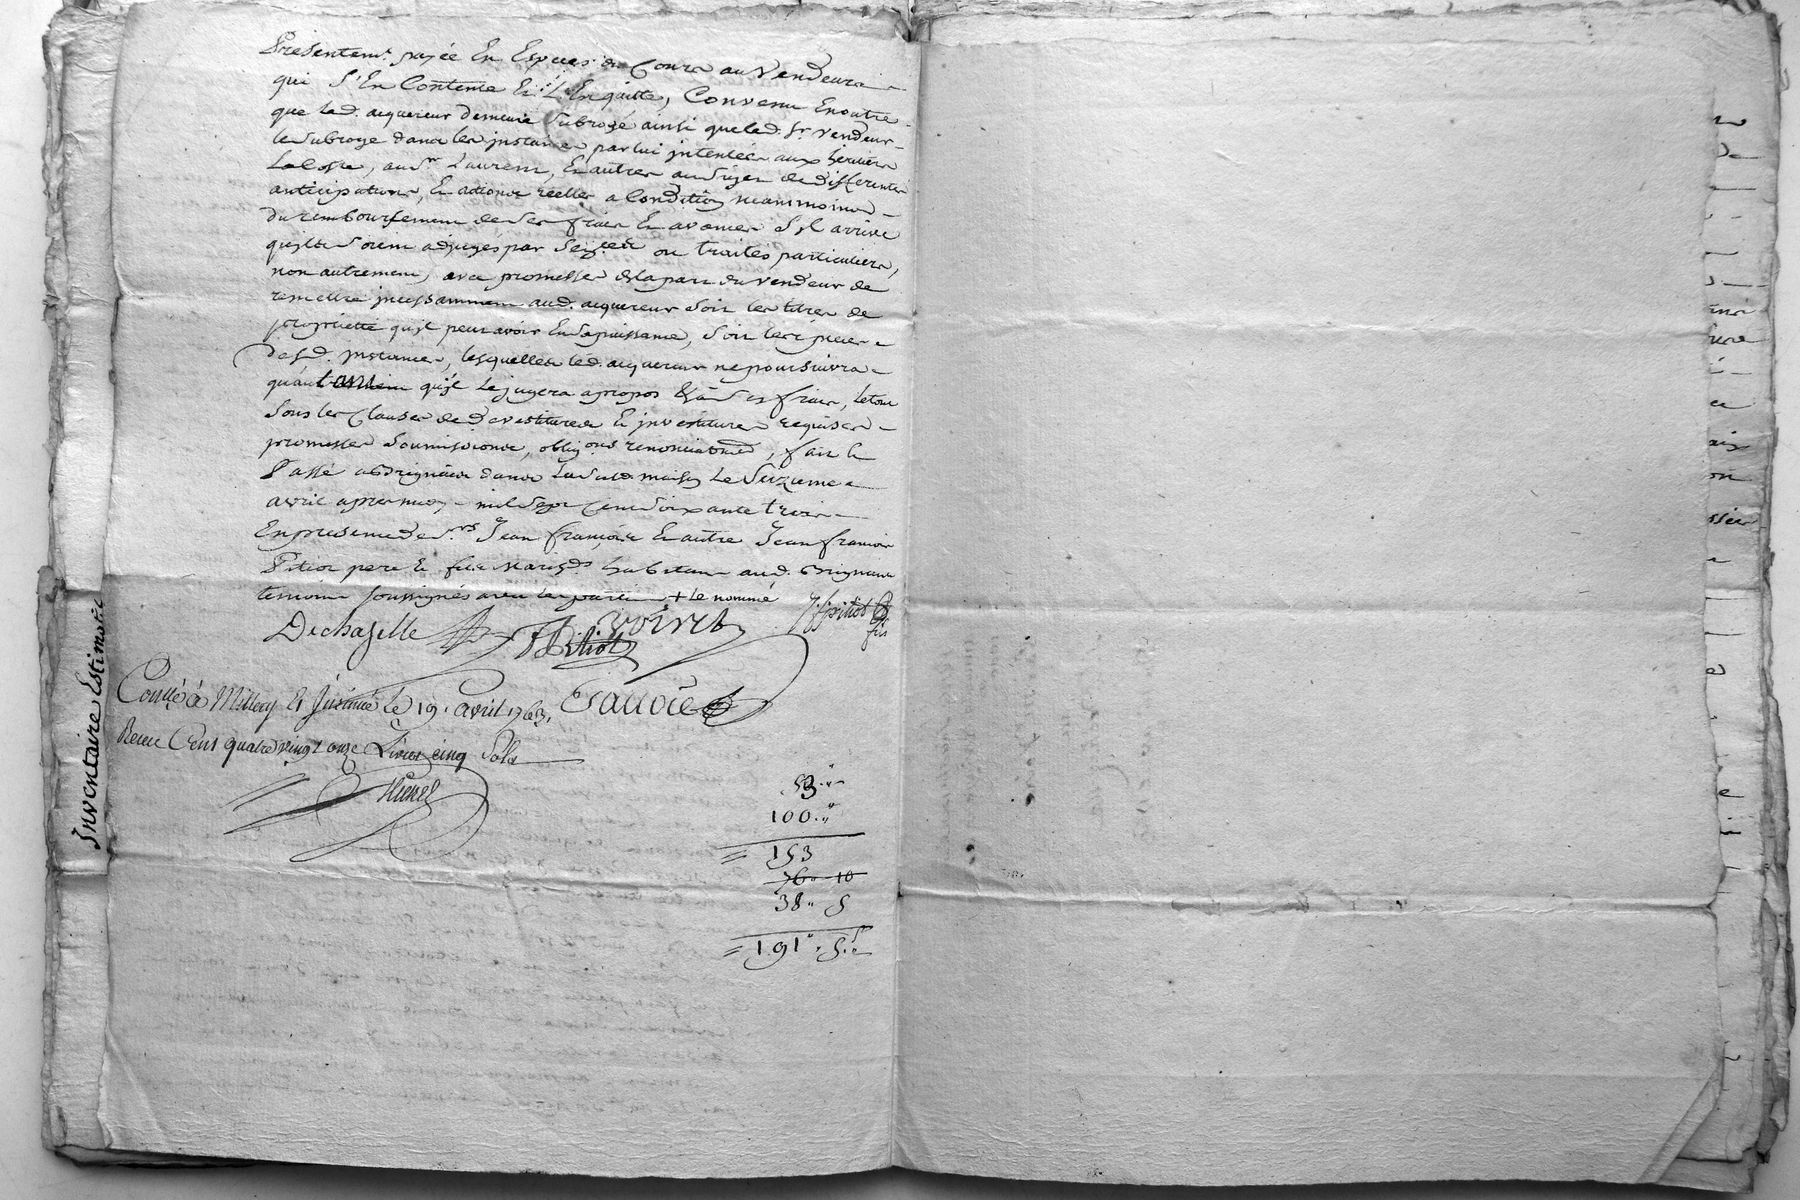 Presentemt. payée En Especes du Cours au Vendeur
qui S'En Contente Et L'En quitte, Convenu Enoutre
que led. acquereur demeure Subrogé ainsi queled. Sr. vendeur
le Subroge dans les jnstances par lui jntentées aux heritiers
LaCoste, au Sr. Laurent, Et autres au Sujet de differentes
anticipations, Et actions réelles a Condition neanmoins
du remboursement de Ses frais Et avances S'il arrive
quils Soient adjugés par Sentce ou traités particuliers,
non autrement, avec promesse de la part du vendeur de
remettre jncessamment aud. acquereur Soit les titres de
proprietté qujl peut avoir En Sa puissance, Soit les pieces
desd. jnstances, lesquelles led. acquereur ne poursuivra
qu'autant qujl le jugera apropos Et à Ses frais, le tout
Sous les Clauses de devestitures Et jnvestitures requises
promesses Soumissions, obligons renonciations, fait Et
Passé a Brignais dans la Susd. maison le Seizieme
avril apres midy mil Sept Cent Soixante trois
En presence de Srs Jean françois Et autre Jean francois
Pitiot pere Et fils March.ds habitans aud. Brignais
temoins soussignés avec les parties + le nommé
Dechazelle Voiret J.f. pitiot fils
Pitiot
Conllé à Millery Et Jnsinué le 19. avril 1763. 
Receu Cent quatre vingt onze Livres cinq Sols
53."
100."
153
76" 10
38" 5
191" 5s
Inventaire Estimatif